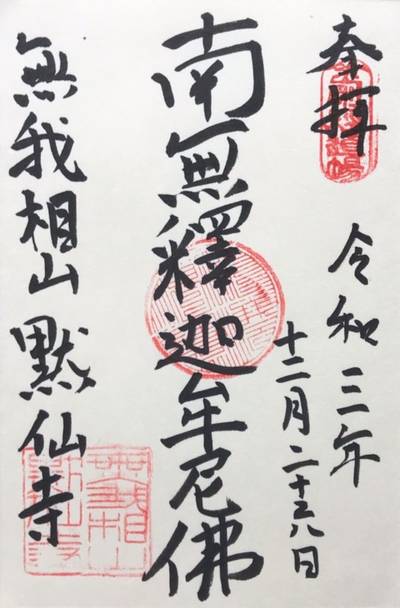 奉拝
令和三年
十二月二十六日
南無釋迦牟尼佛
無我相山 默仙寺